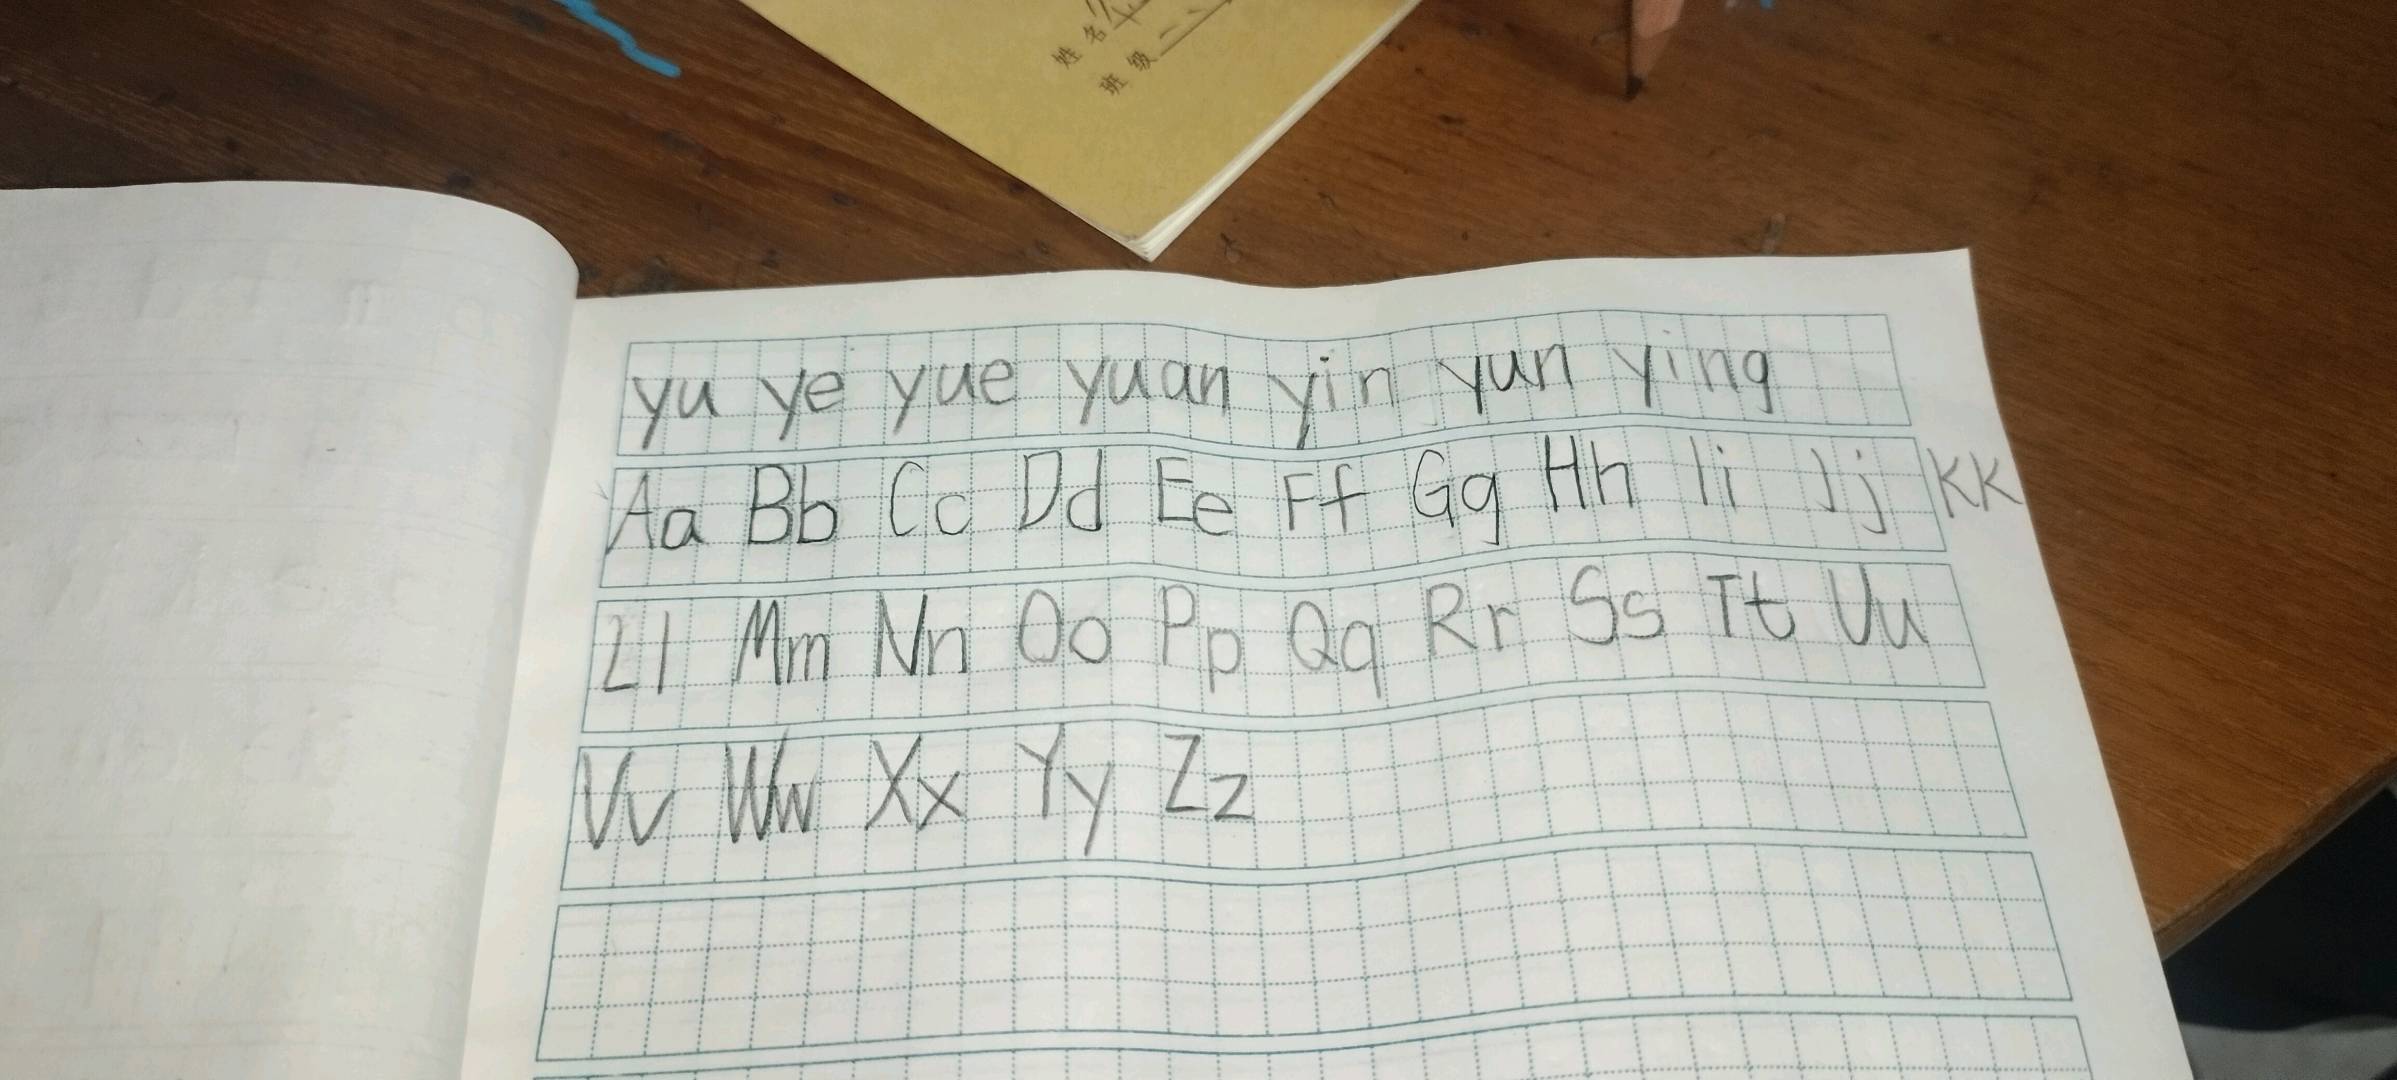 姓名
班级 二
yu ye yue yuan yin yun ying
Aa Bb Cc Dd Ee Ff Gg Hh Ii Jj Kk
Ll Mm Nn Oo Pp Qq Rr Ss Tt Uu
Vv Ww Xx Yy Zz